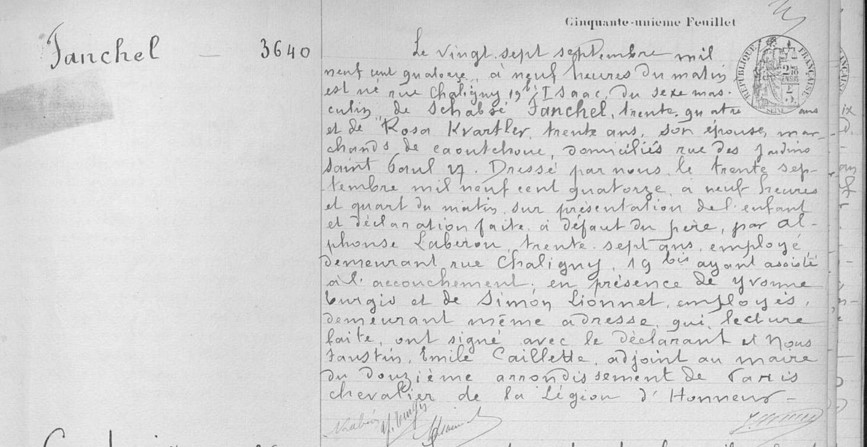 Cinquante-unieme Feuillet
Fanchel — 3640
Le vingt sept septembre mil
neuf cent quatorze, a neuf heures du matin
est né rue Chaligny 19 bis, Isaac, du sexe mas-
culin, de Schabse Fanchel, trente quatre ans
et de Rosa Kvartler, trente ans, son épouse, mar-
chands de caoutchouc, domiciliés rue des Jardins
Saint Paul 27. Dressé par nous le trente sep-
tembre mil neuf cent quatorze, a neuf heures
et quart du matin, sur présentation de l'enfant
et déclaration faite, à défaut du père, par Al-
phonse Laberon, trente sept ans, employé,
demeurant rue Chaligny, 19 bis ayant assisté
à l'accouchement; en présence de Yvonne
Turgis et de Simon Lionnet, employés,
demeurant même adresse, qui, lecture
faite, ont signé avec le déclarant et Nous
Faustin, Emile Caillette, adjoint au maire
du douzième arrondissement de Paris
chevalier de la Légion d'Honneur -
RÉPUBLIQUE FRANÇAISE